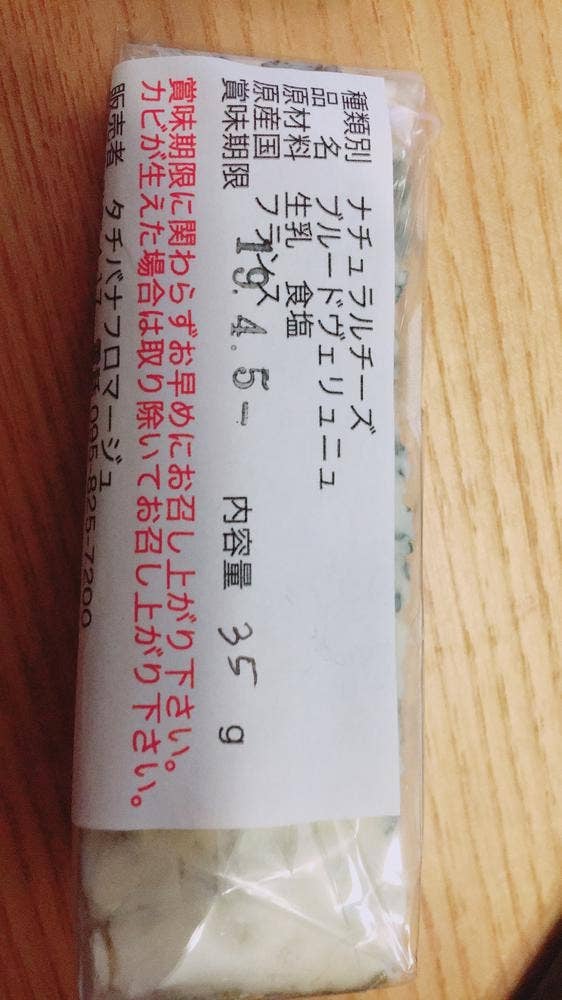 種類別 ナチュラルチーズ
品名 ブルードヴェリュニュ
原材料 生乳 食塩
原産国 フランス
賞味期限 19.4.5- 内容量 35 g
賞味期限に関わらずお早めにお召し上がり下さい。
カビが生えた場合は取り除いてお召し上がり下さい。
販売者 タチバナフロマージュ
095-825-7200